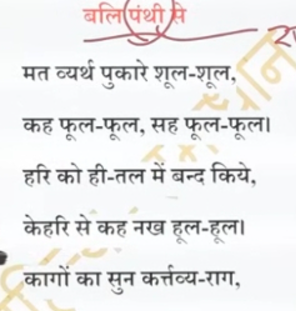 बलि पंथी से
मत व्यर्थ पुकारे शूल-शूल,
कह फूल-फूल, सह फूल-फूल।
हरि को ही-तल में बन्द किये,
केहरि से कह नख हूल-हूल।
कागों का सुन कर्त्तव्य-राग,